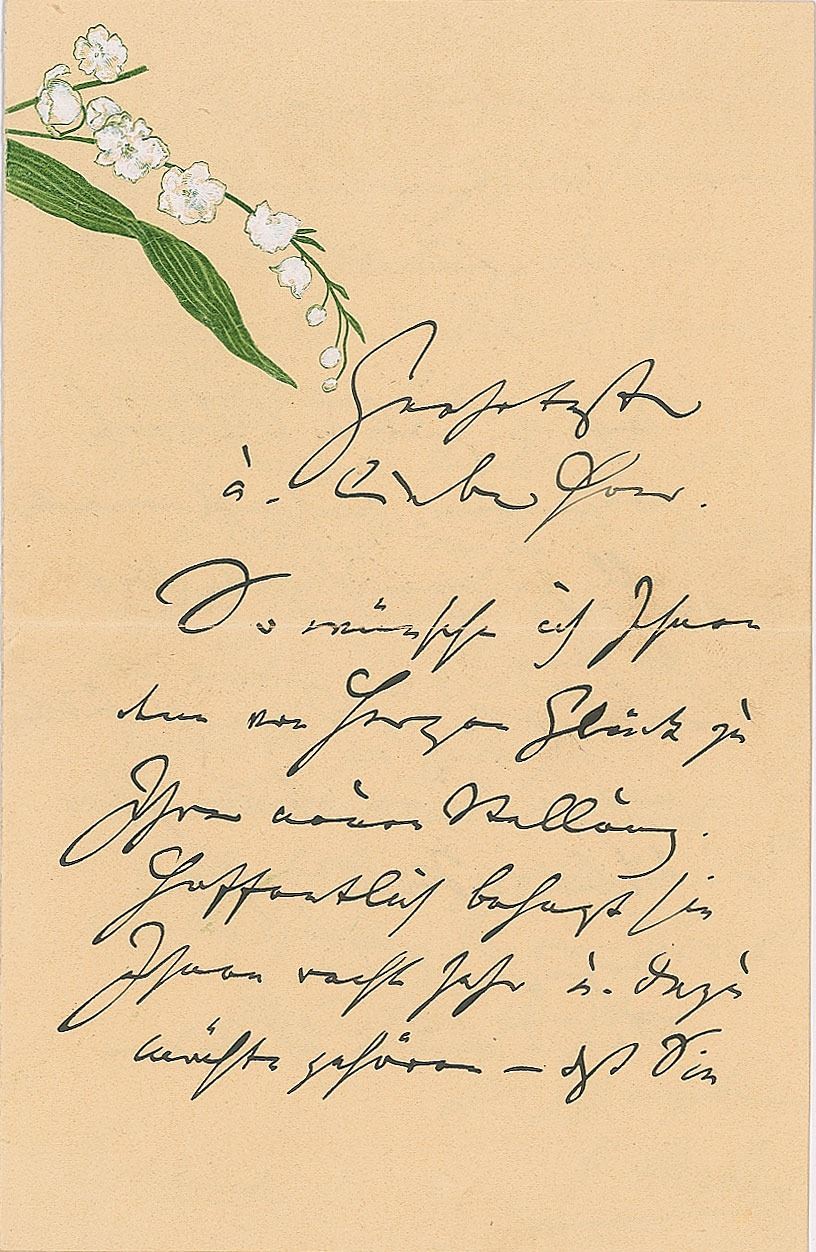 Geehrteste
u. Liebe Frau.
So wünsche ich Ihnen
denn von Herzen Glück zu
Ihrer neuen Stellung.
Hoffentlich behagt sie
Ihnen recht sehr u. dazu
möchte gehören – dß Sie